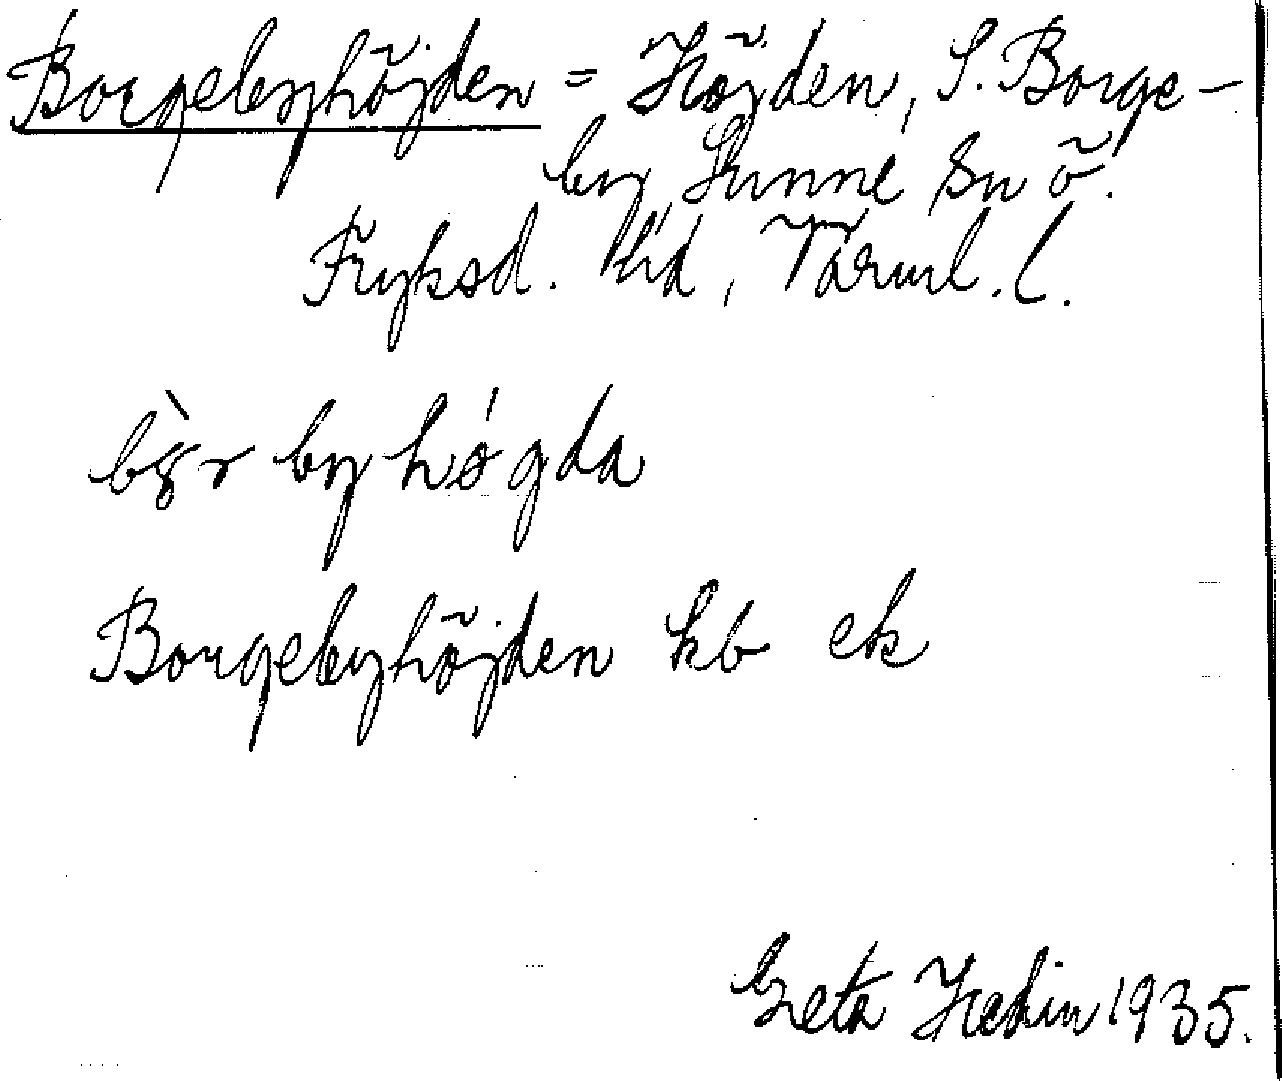 Borgebyhöjden = Höjden, S. Borge-
by Sunne sn ö.
Fryksd. hd, Värml. l.
byhøgda
Borgebyhöjden kb ek
Greta Hedin 1935.